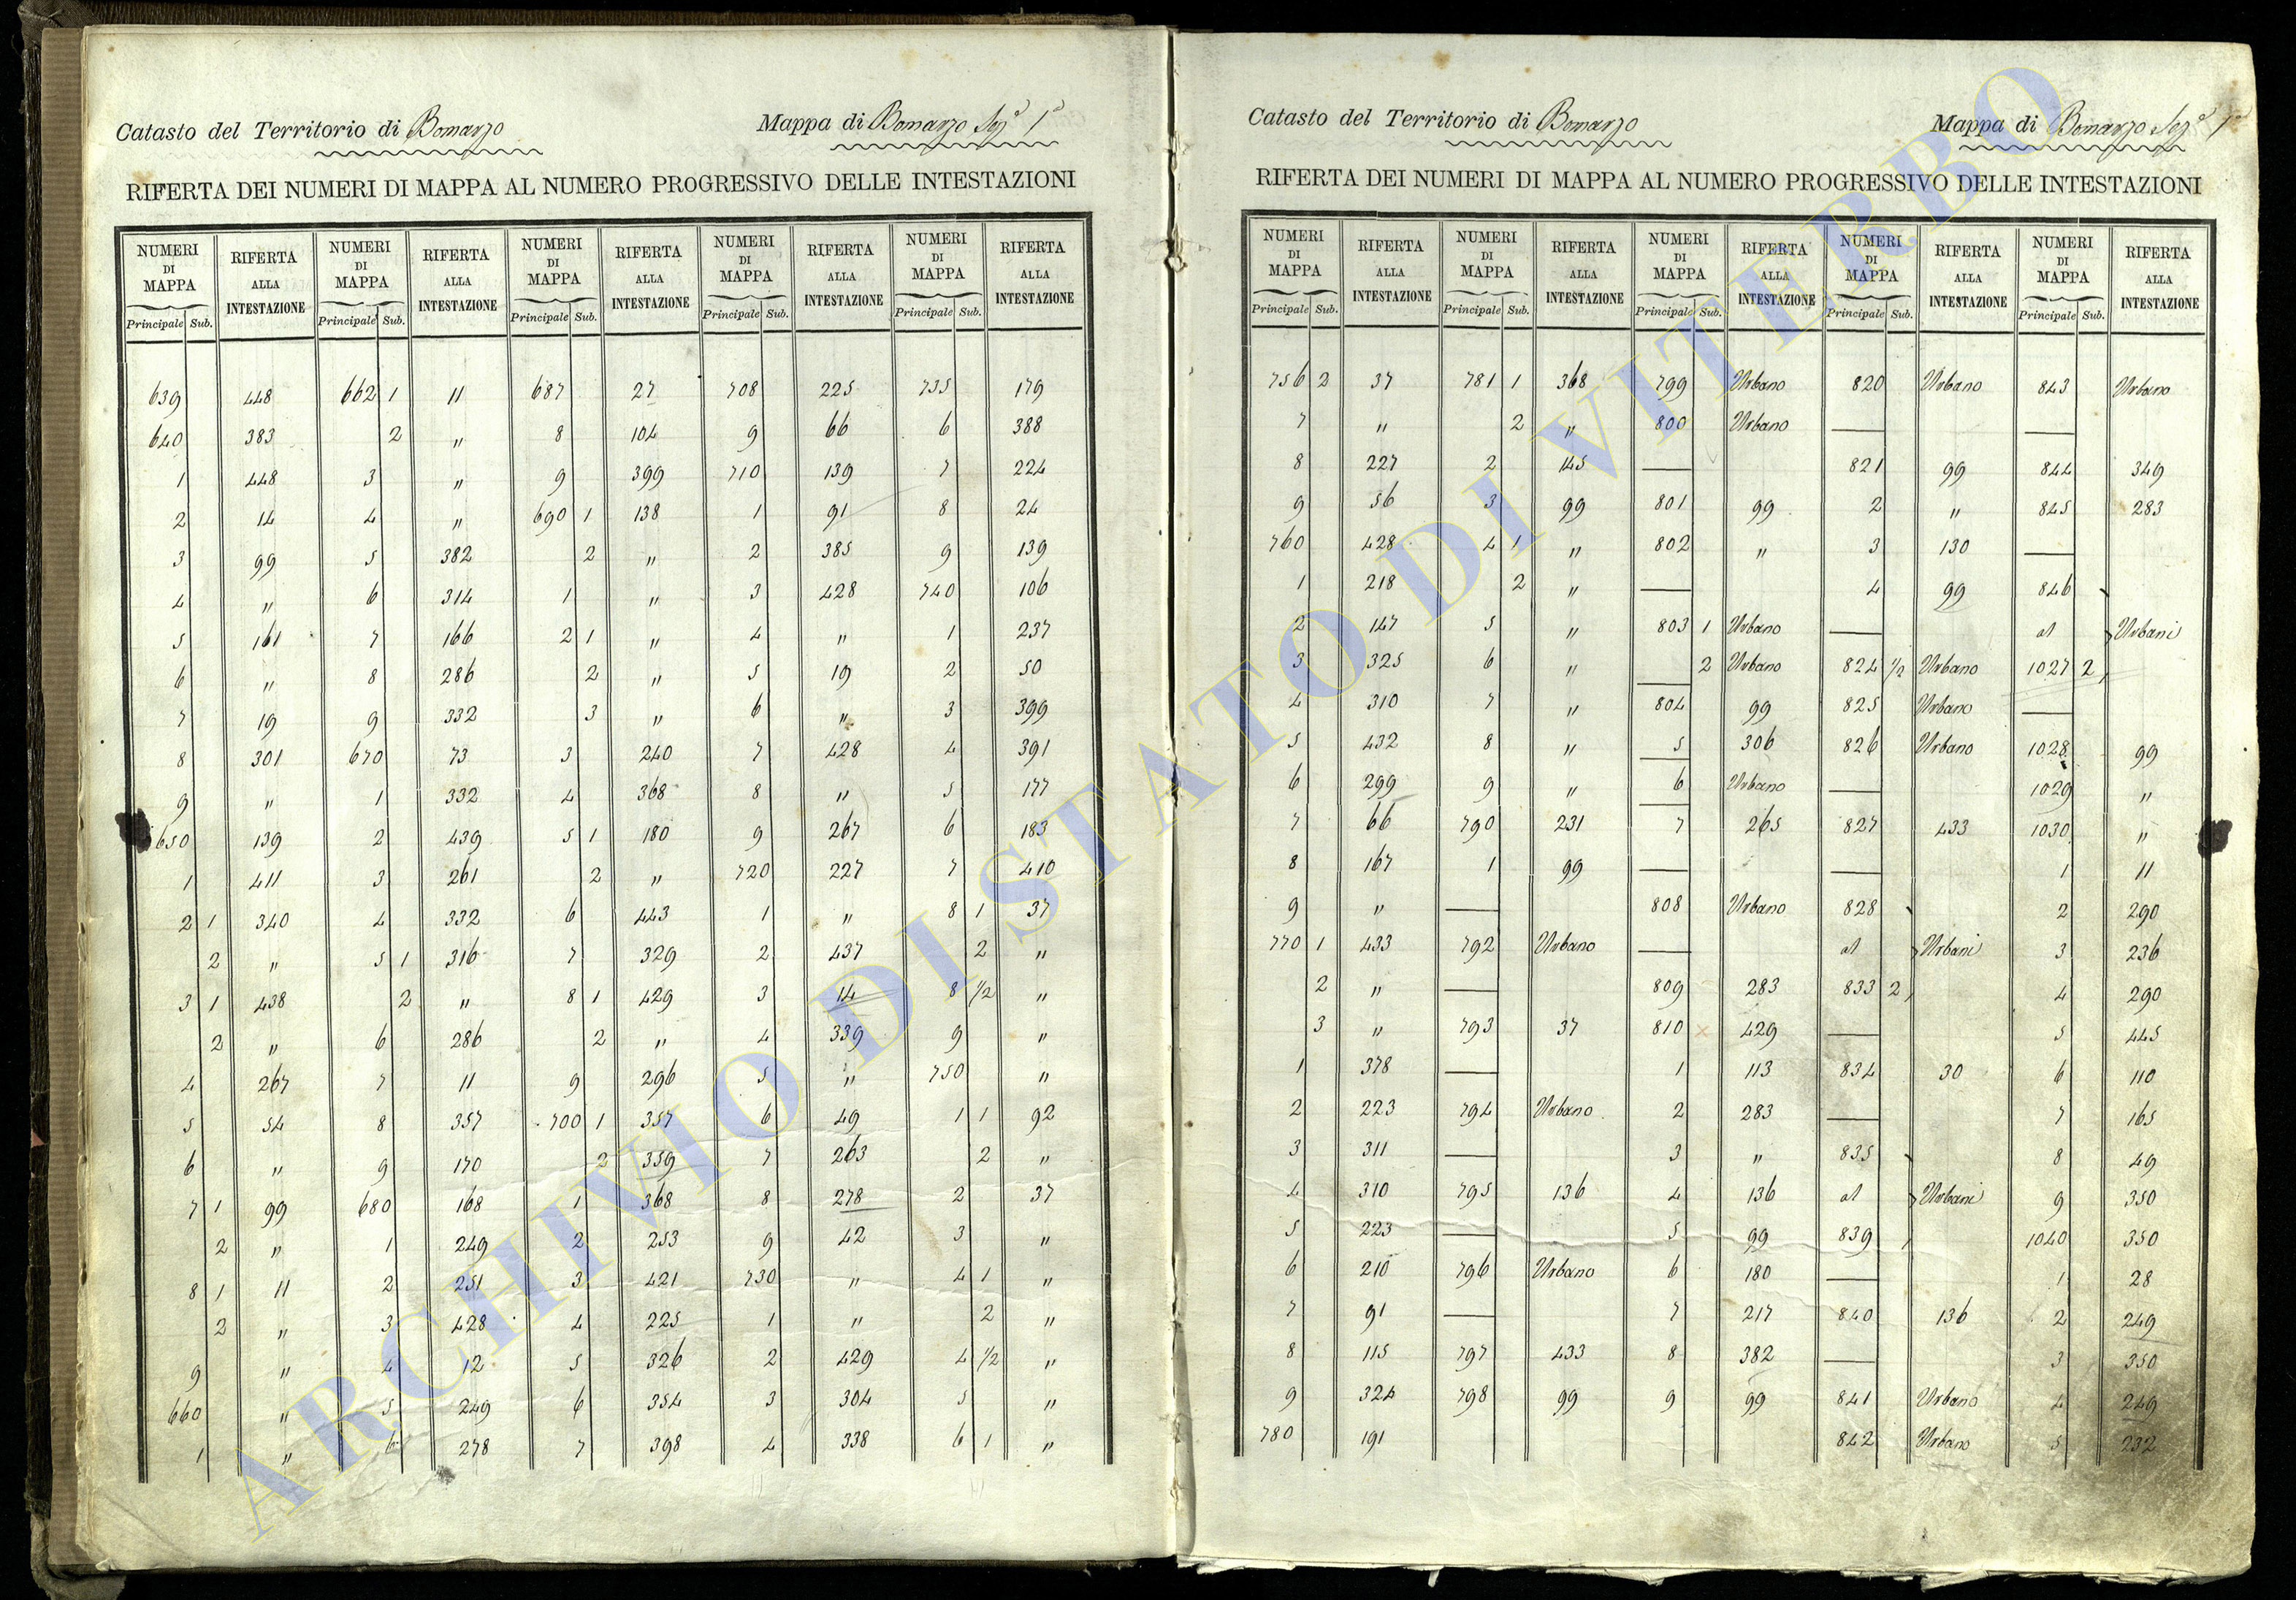 Catasto del Territorio di Bomarzo Mappa di Bomarzo Sez.e 1a
RIFERTA DEI NUMERI DI MAPPA AL NUMERO PROGRESSIVO DELLE INTESTAZIONI
NUMERI DI MAPPA RIFERTA ALLA INTESTAZIONE NUMERI DI MAPPA RIFERTA ALLA INTESTAZIONE NUMERI DI MAPPA RIFERTA ALLA INTESTAZIONE NUMERI DI MAPPA RIFERTA ALLA INTESTAZIONE NUMERI DI MAPPA RIFERTA ALLA INTESTAZIONE
Principale Sub. Principale Sub. Principale Sub. Principale Sub. Principale Sub.
639 448 662 1 11 687 27 708 225 735 179
640 383 2 " 8 104 9 66 6 388
1 448 3 " 9 399 710 139 7 224
2 14 4 " 690 1 138 1 91 8 24
3 99 5 382 2 " 2 385 9 139
4 " 6 314 1 " 3 428 740 106
5 161 7 166 2 1 " 4 " 1 237
6 " 8 286 2 " 5 19 2 50
7 19 9 332 3 " 6 " 3 399
8 301 670 73 3 240 7 428 4 391
9 " 1 332 4 368 8 " 5 177
650 139 2 439 5 1 180 9 267 6 183
1 411 3 261 2 " 720 227 7 410
2 1 340 4 332 6 443 1 " 8 1 37
2 " 5 1 316 7 329 2 437 2 "
3 1 438 2 " 8 1 429 3 14 8 1/2 "
2 " 6 286 2 " 4 339 9 "
4 267 7 11 9 296 5 " 750 "
5 54 8 357 700 1 357 6 49 1 1 92
6 " 9 170 2 359 7 263 2 "
7 1 99 680 168 1 368 8 278 2 37
2 " 1 249 2 253 9 42 3 "
8 1 11 2 251 3 421 730 " 4 1 "
2 " 3 428 4 225 1 " 2 "
9 " 4 12 5 326 2 429 4 1/2 "
660 " 5 249 6 354 3 304 5 "
1 " 6 278 7 398 4 338 6 1 "
Catasto del Territorio di Bomarzo Mappa di Bomarzo Sez.e 1a
RIFERTA DEI NUMERI DI MAPPA AL NUMERO PROGRESSIVO DELLE INTESTAZIONI
NUMERI DI MAPPA RIFERTA ALLA INTESTAZIONE NUMERI DI MAPPA RIFERTA ALLA INTESTAZIONE NUMERI DI MAPPA RIFERTA ALLA INTESTAZIONE NUMERI DI MAPPA RIFERTA ALLA INTESTAZIONE NUMERI DI MAPPA RIFERTA ALLA INTESTAZIONE
Principale Sub. Principale Sub. Principale Sub. Principale Sub. Principale Sub.
756 2 37 781 1 368 799 Urbano 820 Urbano 843 Urbano
7 " 2 " 800 Urbano
8 227 2 145 821 99 844 349
9 56 3 99 801 99 2 " 845 283
760 428 4 1 " 802 " 3 130
1 218 2 " 4 99 846
2 147 5 " 803 1 Urbano al Urbani
3 325 6 " 2 Urbano 824 1/2 Urbano 1027 2
4 310 7 " 804 99 825 Urbano
5 432 8 " 5 306 826 Urbano 1028 99
6 299 9 " 6 Urbano 1029 "
7 66 790 231 7 265 827 433 1030 "
8 167 1 99 1 11
9 " 808 Urbano 828 2 290
770 1 433 792 Urbano al Urbani 3 236
2 " 809 283 833 2 4 290
3 " 793 37 810 429 5 445
1 378 1 113 834 30 6 110
2 223 794 Urbano 2 283 7 165
3 311 3 " 835 8 49
4 310 795 136 4 136 al Urbani 9 350
5 223 5 99 839 1040 350
6 210 796 Urbano 6 180 1 28
7 91 7 217 840 136 2 249
8 115 797 433 8 382 3 350
9 324 798 99 9 99 841 Urbano 4 249
780 191 842 Urbano 5 232
ARCHIVIO DI STATO DI VITERBO